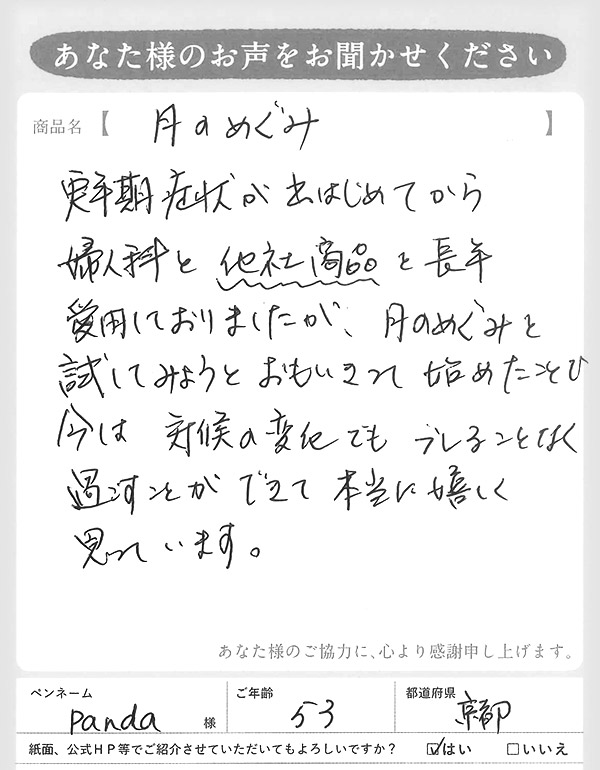 あなた様のお声をお聞かせください
商品名【 月のめぐみ 】
更年期症状が出はじめてから
婦人科と他社商品と長年
愛用しておりましたが、月のめぐみを
試してみようとおもいきって始めたことで
今は 気候の変化でも ブレることなく
過ごすことができて本当に嬉しく
思っています。
あなた様のご協力に、心より感謝申し上げます。
ペンネーム ご年齢 都道府県
panda 様 53 京都
紙面、公式HP等でご紹介させていただいてもよろしいですか? ☑はい □いいえ